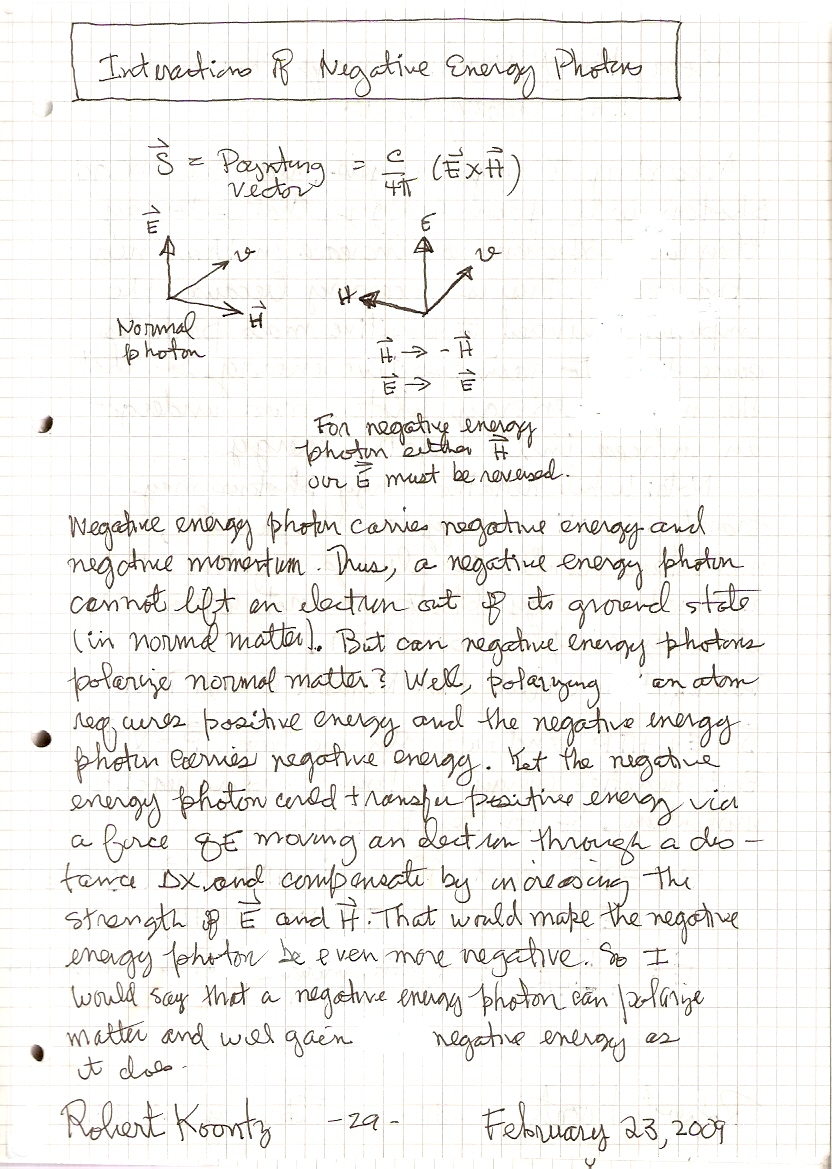 Interactions of Negative Energy Photons
S⃗ = Poynting vector = c/4π (E⃗ x H⃗)
E⃗ v H⃗
Normal photon
E v H
H⃗ → - H⃗
E⃗ → E⃗
For negative energy
photon either H⃗
our E⃗ must be reversed.
Negative energy photon carries negative energy and
negative momentum. Thus, a negative energy photon
cannot lift an electron out of its ground state
(in normal matter). But can negative energy photons
polarize normal matter? Well, polarizing an atom
requires positive energy and the negative energy
photon carries negative energy. Yet the negative
energy photon could transfer positive energy via
a force qE moving an electron through a dis-
tance Δx and compensate by increasing the
strength of E⃗ and H⃗. That would make the negative
energy photon be even more negative. So I
would say that a negative energy photon can polarize
matter and will gain negative energy as
it does.
Robert Koontz -29- February 23, 2009